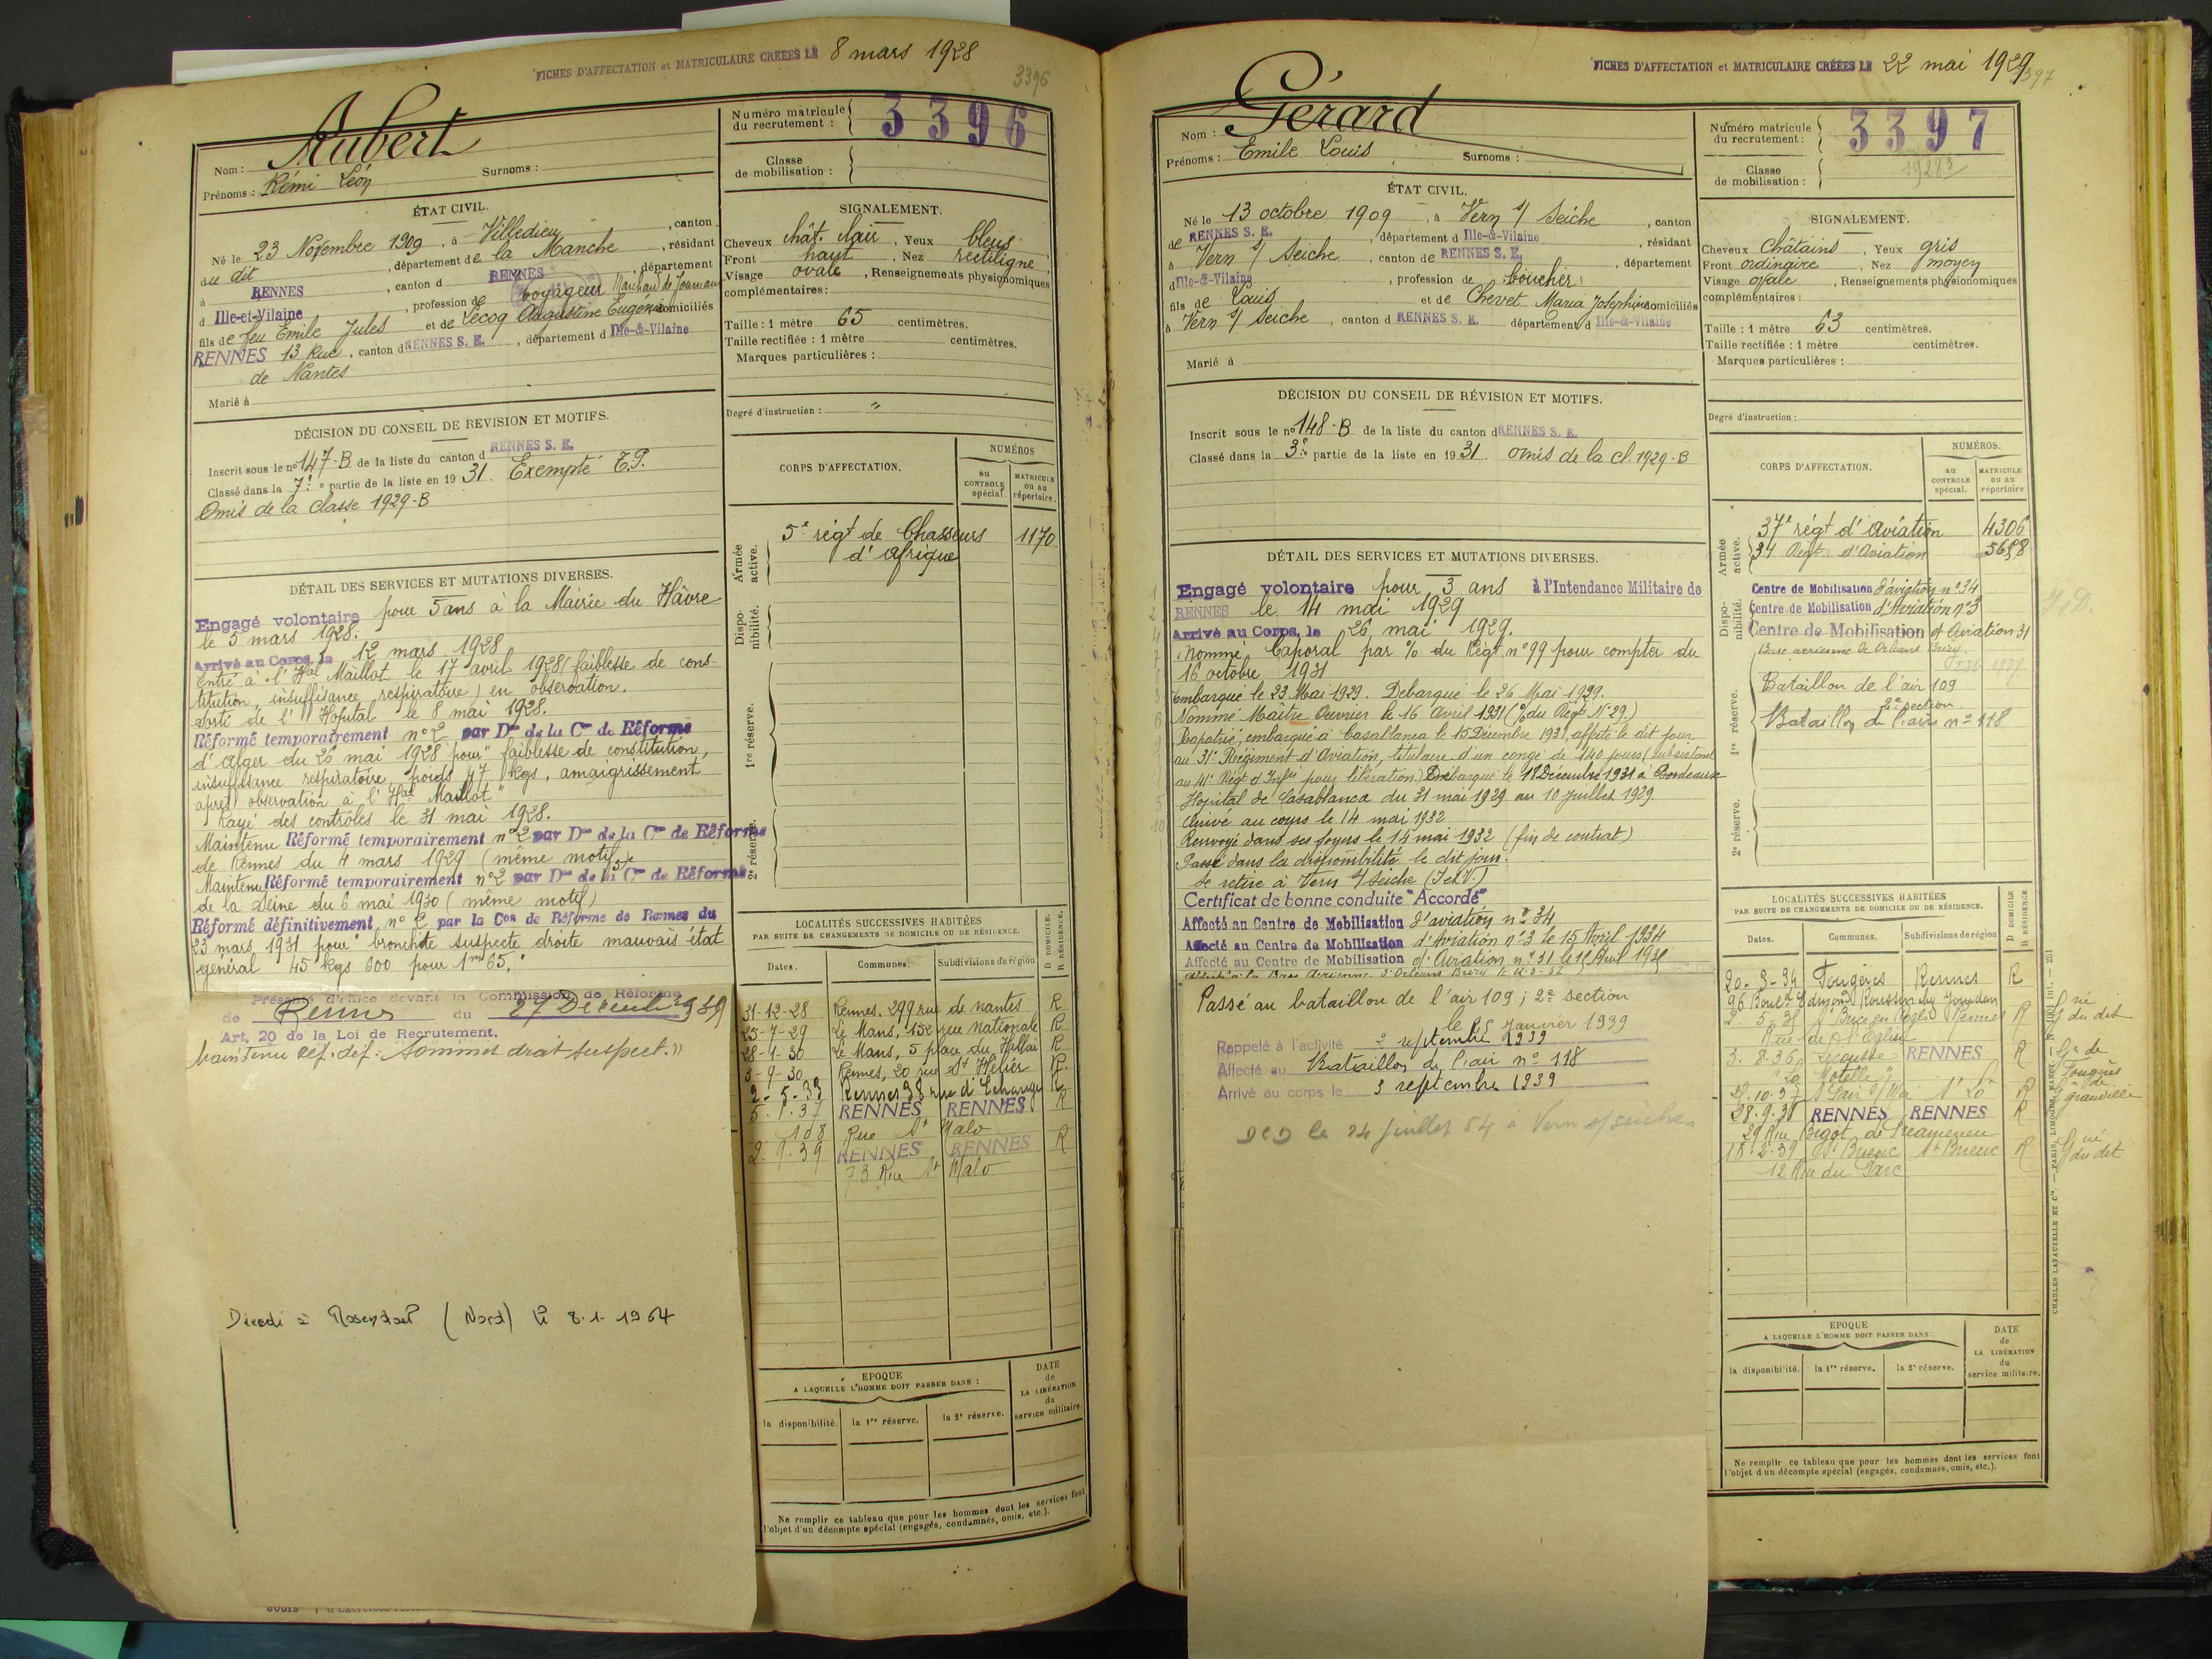 FICHES D'AFFECTATION et MATRICULAIRE CRÉÉES LE 8 mars 1928
3396
Nom : Aubert
Prénoms : Rémi Léon Surnoms :
Numéro matricule du recrutement : 3396
Classe de mobilisation :
ÉTAT CIVIL.
Né le 23 Novembre 1909, à Villedieu, canton
du dit, département de la Manche, résidant
à RENNES, canton d RENNES, département
d Ille-et-Vilaine, profession de voyageur Marchand de Journaux
fils de feu Emile Jules et de Lecoq Augustine Eugénie domiciliés
RENNES 13 Rue, canton d RENNES S. E., département d Ille-&-Vilaine
de Nantes
Marié à
SIGNALEMENT.
Cheveux chât. clair, Yeux bleus
Front haut, Nez rectiligne
Visage ovale, Renseignements physionomiques
complémentaires :
Taille : 1 mètre 65 centimètres.
Taille rectifiée : 1 mètre centimètres.
Marques particulières :
Degré d'instruction : "
DÉCISION DU CONSEIL DE REVISION ET MOTIFS.
Inscrit sous le nº 147-B de la liste du canton d RENNES S. E.
Classé dans la 7e partie de la liste en 1931. Exempté E.P.
Omis de la classe 1929-B
CORPS D'AFFECTATION.
NUMÉROS
au CONTROLE spécial.
MATRICULE ou au répertoire.
Armée active.
5e régt de Chasseurs 1170
d'Afrique
Dispo- nibilité.
1re réserve.
2e réserve.
DÉTAIL DES SERVICES ET MUTATIONS DIVERSES.
Engagé volontaire pour 5 ans à la Mairie du Hâvre
le 5 mars 1928.
Arrivé au Corps, le 12 mars 1928
Entré à l'Hal Maillot le 17 avril 1928 (faiblesse de cons-
titution, insuffisance respiratoire) en observation.
Sorti de l'Hopital le 8 mai 1928.
Réformé temporairement nº 2 par Don de la Con de Réforme
d'Alger du 26 mai 1928 pour "faiblesse de constitution,
insuffisance respiratoire, poids 47 kgs, amaigrissement
après observation à l'Hal Maillot"
Rayé des contrôles le 31 mai 1928.
Maintenu Réformé temporairement nº 2 par Don de la Con de Réforme
de Rennes du 4 mars 1929 (même motif)
Maintenu Réformé temporairement nº 2 par Don de la Con de Réforme
de la Seine du 6 mai 1930 (même motif)
Réformé définitivement nº 2 par la Con de Réforme de Rennes du
23 mars 1931 pour "bronchite suspecte droite mauvais état
général 45 kgs 600 pour 1m65."
Présenté d'office devant la Commission de Réforme
de Rennes du 27 Décembre 1939
Art. 20 de la Loi de Recrutement.
Maintenu Réf. déf. "Sommet droit suspect."
Décédé à Rosendael (Nord) le 8.1.1964
LOCALITÉS SUCCESSIVES HABITÉES
PAR SUITE DE CHANGEMENTS DE DOMICILE OU DE RÉSIDENCE.
D DOMICILE.
R RÉSIDENCE.
Dates. Communes. Subdivisions de région
31-12-28 Rennes, 299 rue de Nantes R
25-7-29 Le Mans, 152 rue Nationale R
28-1-30 Le Mans, 5 place du Hallai R
3-9-30 Rennes, 20 rue St Hélier R
2-5-33 Rennes 38 rue d'Echange R
5.1.37 RENNES RENNES R
108 Rue St Malo
2.9.39 RENNES RENNES R
73 Rue St Malo
EPOQUE
A LAQUELLE L'HOMME DOIT PASSER DANS :
la disponibilité. la 1re réserve. la 2e réserve.
DATE de LA LIBÉRATION du service militaire.
Ne remplir ce tableau que pour les hommes dont les services font
l'objet d'un décompte spécial (engagés, condamnés, omis, etc.).
FICHES D'AFFECTATION et MATRICULAIRE CRÉÉES LE 22 mai 1929
3397
Nom : Gérard
Prénoms : Emile Louis Surnoms :
Numéro matricule du recrutement : 3397
Classe de mobilisation :
ÉTAT CIVIL.
Né le 13 octobre 1909, à Vern s/ Seiche, canton
de RENNES S. E., département d Ille-&-Vilaine, résidant
à Vern s/ Seiche, canton de RENNES S. E., département
d Ille-&-Vilaine, profession de boucher
fils de Louis et de Chevet Maria Joséphine domiciliés
à Vern s/ Seiche, canton d RENNES S. E. département d Ille-&-Vilaine
Marié à
SIGNALEMENT.
Cheveux Châtains, Yeux gris
Front ordinaire, Nez moyen
Visage ovale, Renseignements physionomiques
complémentaires :
Taille : 1 mètre 63 centimètres.
Taille rectifiée : 1 mètre centimètres.
Marques particulières :
Degré d'instruction :
DÉCISION DU CONSEIL DE RÉVISION ET MOTIFS.
Inscrit sous le nº 148-B de la liste du canton d RENNES S. E.
Classé dans la 3e partie de la liste en 1931. omis de la cl. 1929-B
CORPS D'AFFECTATION.
NUMÉROS.
au CONTROLE spécial.
MATRICULE ou au répertoire
Armée active.
37e régt d'aviation 4306
34 Régt d'Aviation
Dispo- nibilité.
Centre de Mobilisation d'aviation nº 34
Centre de Mobilisation d'Aviation nº 3
Centre de Mobilisation d'Aviation 31
Base aérienne de Orléans Bricy
1re réserve.
Bataillon de l'air 109
2e section
Bataillon de l'air nº 118
2e réserve.
DÉTAIL DES SERVICES ET MUTATIONS DIVERSES.
Engagé volontaire pour 3 ans à l'Intendance Militaire de
RENNES le 14 mai 1929
Arrivé au Corps, le 26 mai 1929.
Nommé Caporal par % du Régt nº 99 pour compter du
16 octobre 1931
Embarqué le 23 Mai 1929. Débarqué le 26 Mai 1929.
Nommé Maître Ouvrier le 16 Avril 1931 (% du Régt Nº 29.)
Rapatrié, embarqué à Casablanca le 15 Décembre 1931, affecté le dit jour
au 31e Régiment d'Aviation, titulaire d'un congé de 140 jours (subsistant
au 41e Régt d'Infie pour libération.) Débarqué le 18 Décembre 1931 à Bordeaux
Hopital de Casablanca du 31 mai 1929 au 10 juillet 1929.
Arrivé au corps le 14 mai 1932
Renvoyé dans ses foyers le 14 mai 1932 (fin de contrat)
Passé dans la disponibilité le dit jour.
Se retire à Vern s/ Seiche (I et V.)
Certificat de bonne conduite "Accordé"
Affecté au Centre de Mobilisation d'aviation nº 34
Affecté au Centre de Mobilisation d'Aviation nº 3 le 15 Avril 1934
Affecté au Centre de Mobilisation d'Aviation nº 31 le 15 Avril
Passé au bataillon de l'air 109 ; 2e section
le 25 janvier 1939
Rappelé à l'activité 2 septembre 1939
Affecté au Bataillon de l'air nº 118
Arrivé au corps le 3 septembre 1939
DCD le 24 juillet 54 à Vern s/ seiche
LOCALITÉS SUCCESSIVES HABITÉES
PAR SUITE DE CHANGEMENTS DE DOMICILE OU DE RÉSIDENCE.
D DOMICILE
R RÉSIDENCE
Dates. Communes. Subdivisions de région
20-3-34 Fougères Rennes R
96 Boulevd Edmond Roussin
St Brice en Coglès Rennes R
Rue de l'Eglise
3.8.36 Lécousse RENNES R
"La Motelle"
St Lo R
28.9.38 RENNES RENNES R
29 Rue Bigot de Préameneu
18.2.39 St Brieuc St Brieuc R
12 Rue du Parc
Gie de Fougères
Gie de Granville
EPOQUE
A LAQUELLE L'HOMME DOIT PASSER DANS :
la disponibilité. la 1re réserve. la 2e réserve.
DATE de LA LIBÉRATION du service militaire.
Ne remplir ce tableau que pour les hommes dont les services font
l'objet d'un décompte spécial (engagés, condamnés, omis, etc.).